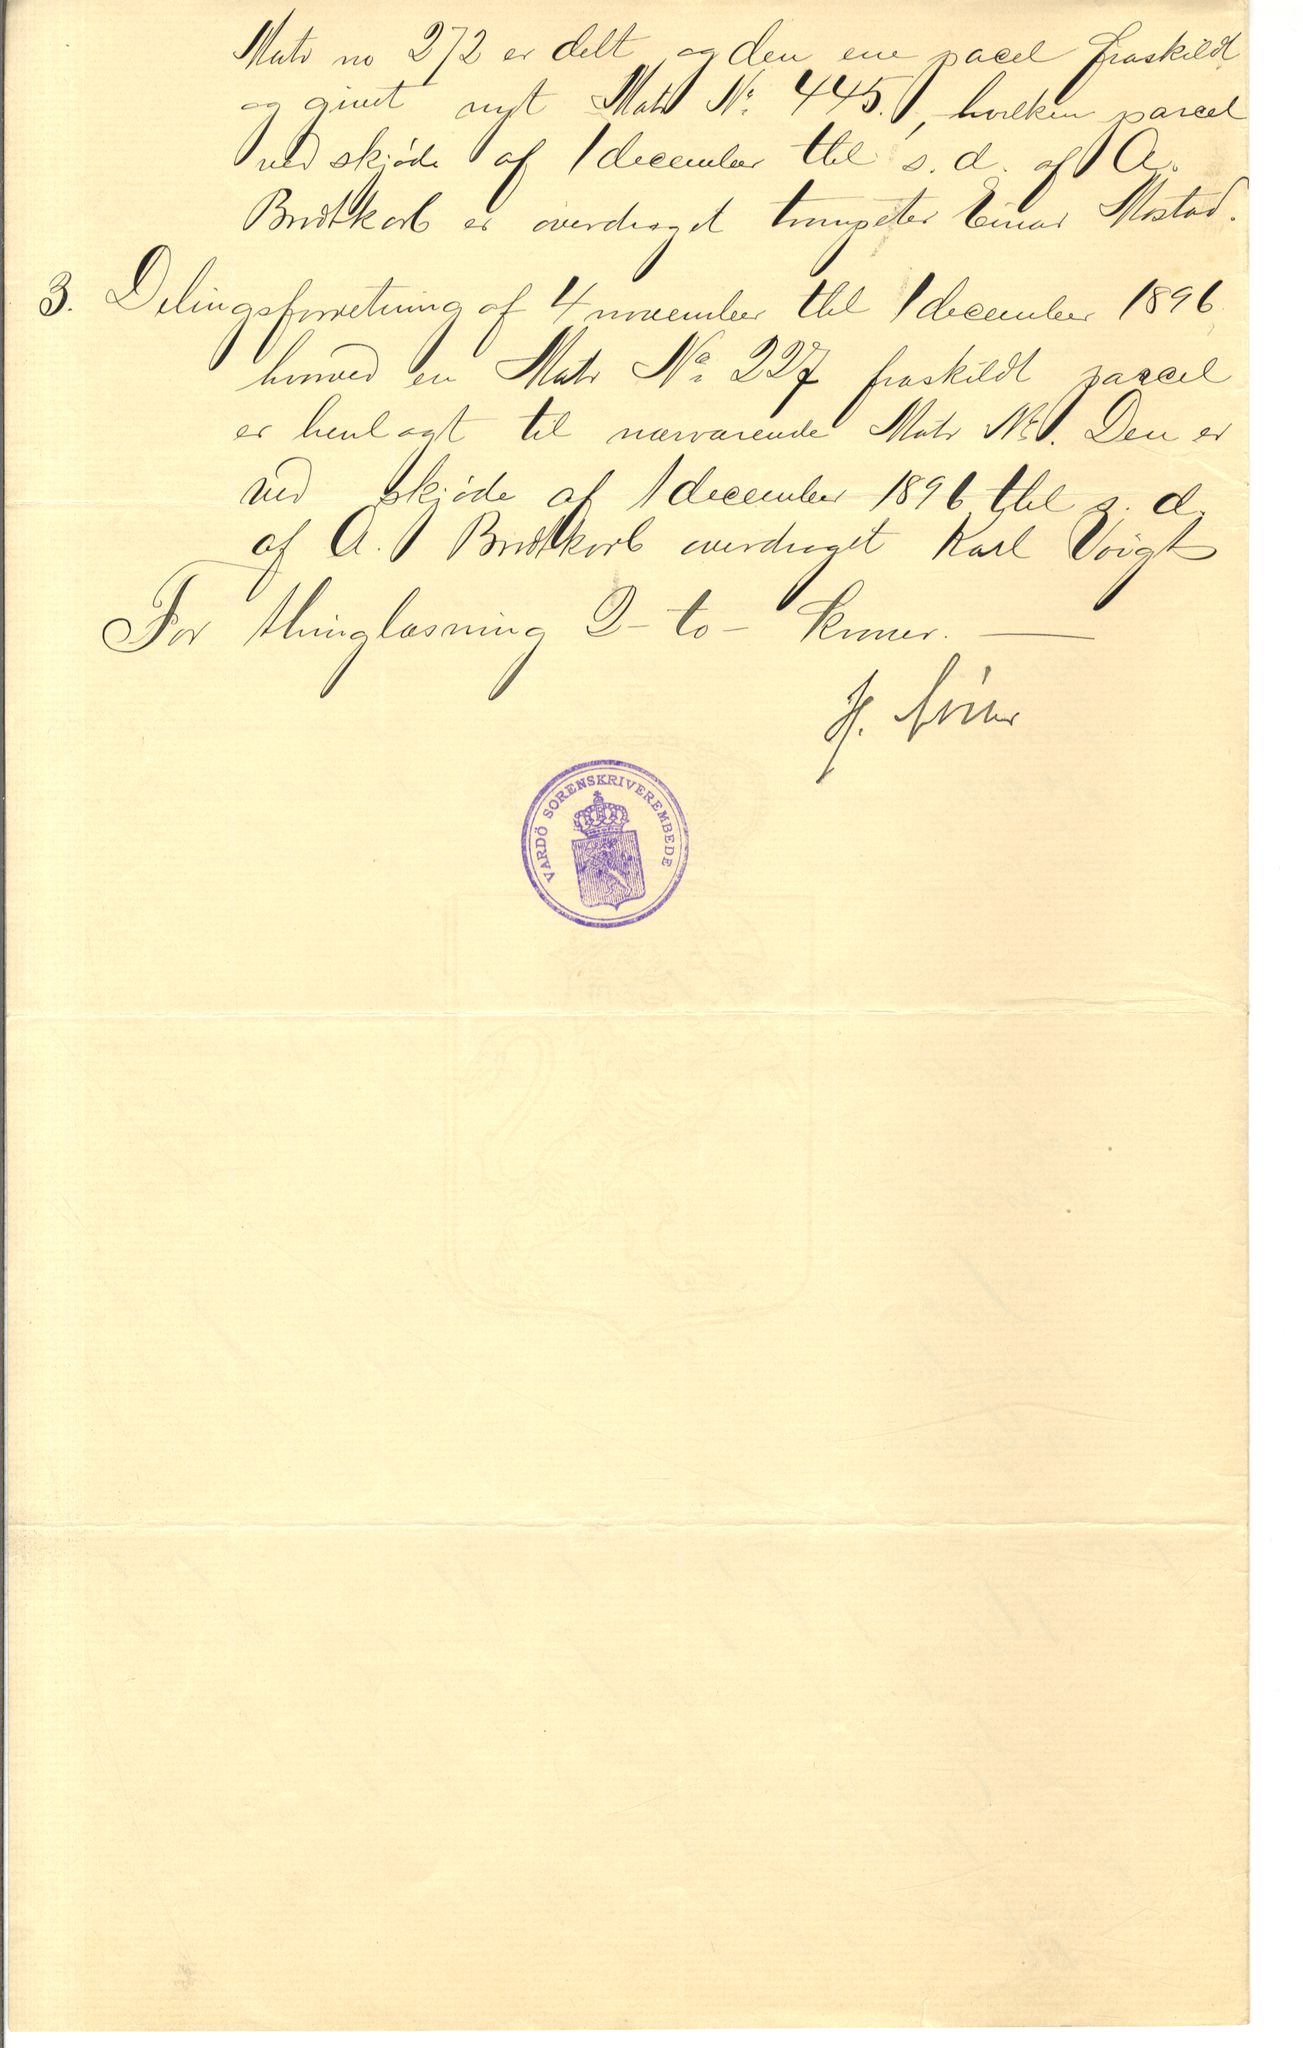 Matr no 272 er delt og den ene pacel fraskildt
og givet nyt Matr No 445, hvilken parcel
ved skjöde af 1 december thl s. d. af A.
Brodtkorb er overdraget trompeter Einar Mostad.
3. Delingsforretning af 4 november thl 1 december 1896
hvorved en Matr No 227 fraskildt parcel
er henlagt til nærværende Matr No. Den er
ved skjöde af 1 december 1896 thl s. d.
af A. Brodtkorb overdraget Karl Voigt
For thinglæsning 2 - to - Kroner. —
H.
VARDÖ SORENSKRIVEREMBEDE